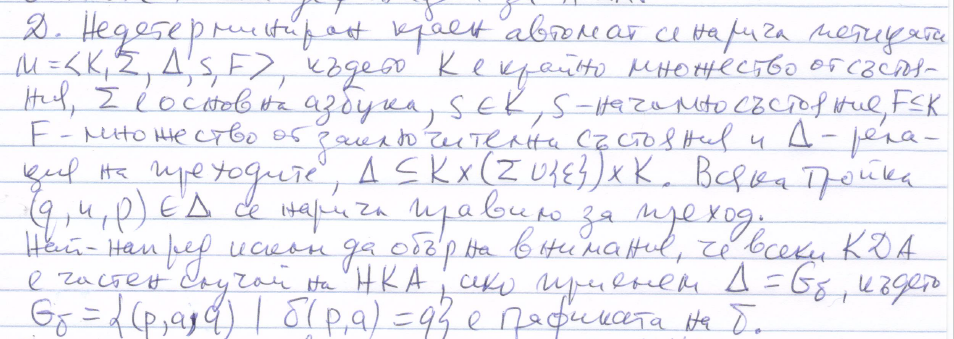 Д. Недетерминиран краен автомат се нарича петицата
M=<K, Σ, Δ, s, F>, където K е крайно множество от състоя-
ния, Σ е основна азбука, s ∈ K, s - начално състояние, F⊆K
F - множество от заключителни състояния и Δ - рела-
ция на преходите, Δ ⊆ K x (Σ ∪ {ε}) x K. Всяка тройка
(q, u, p) ∈ Δ се нарича правило за преход.
Най-напред искам да обърна внимание, че всеки КДА
е частен случай на НКА, ако приемем Δ = G_δ, където
G_δ = {(p, a, q) | δ(p, a) = q} е графиката на δ.